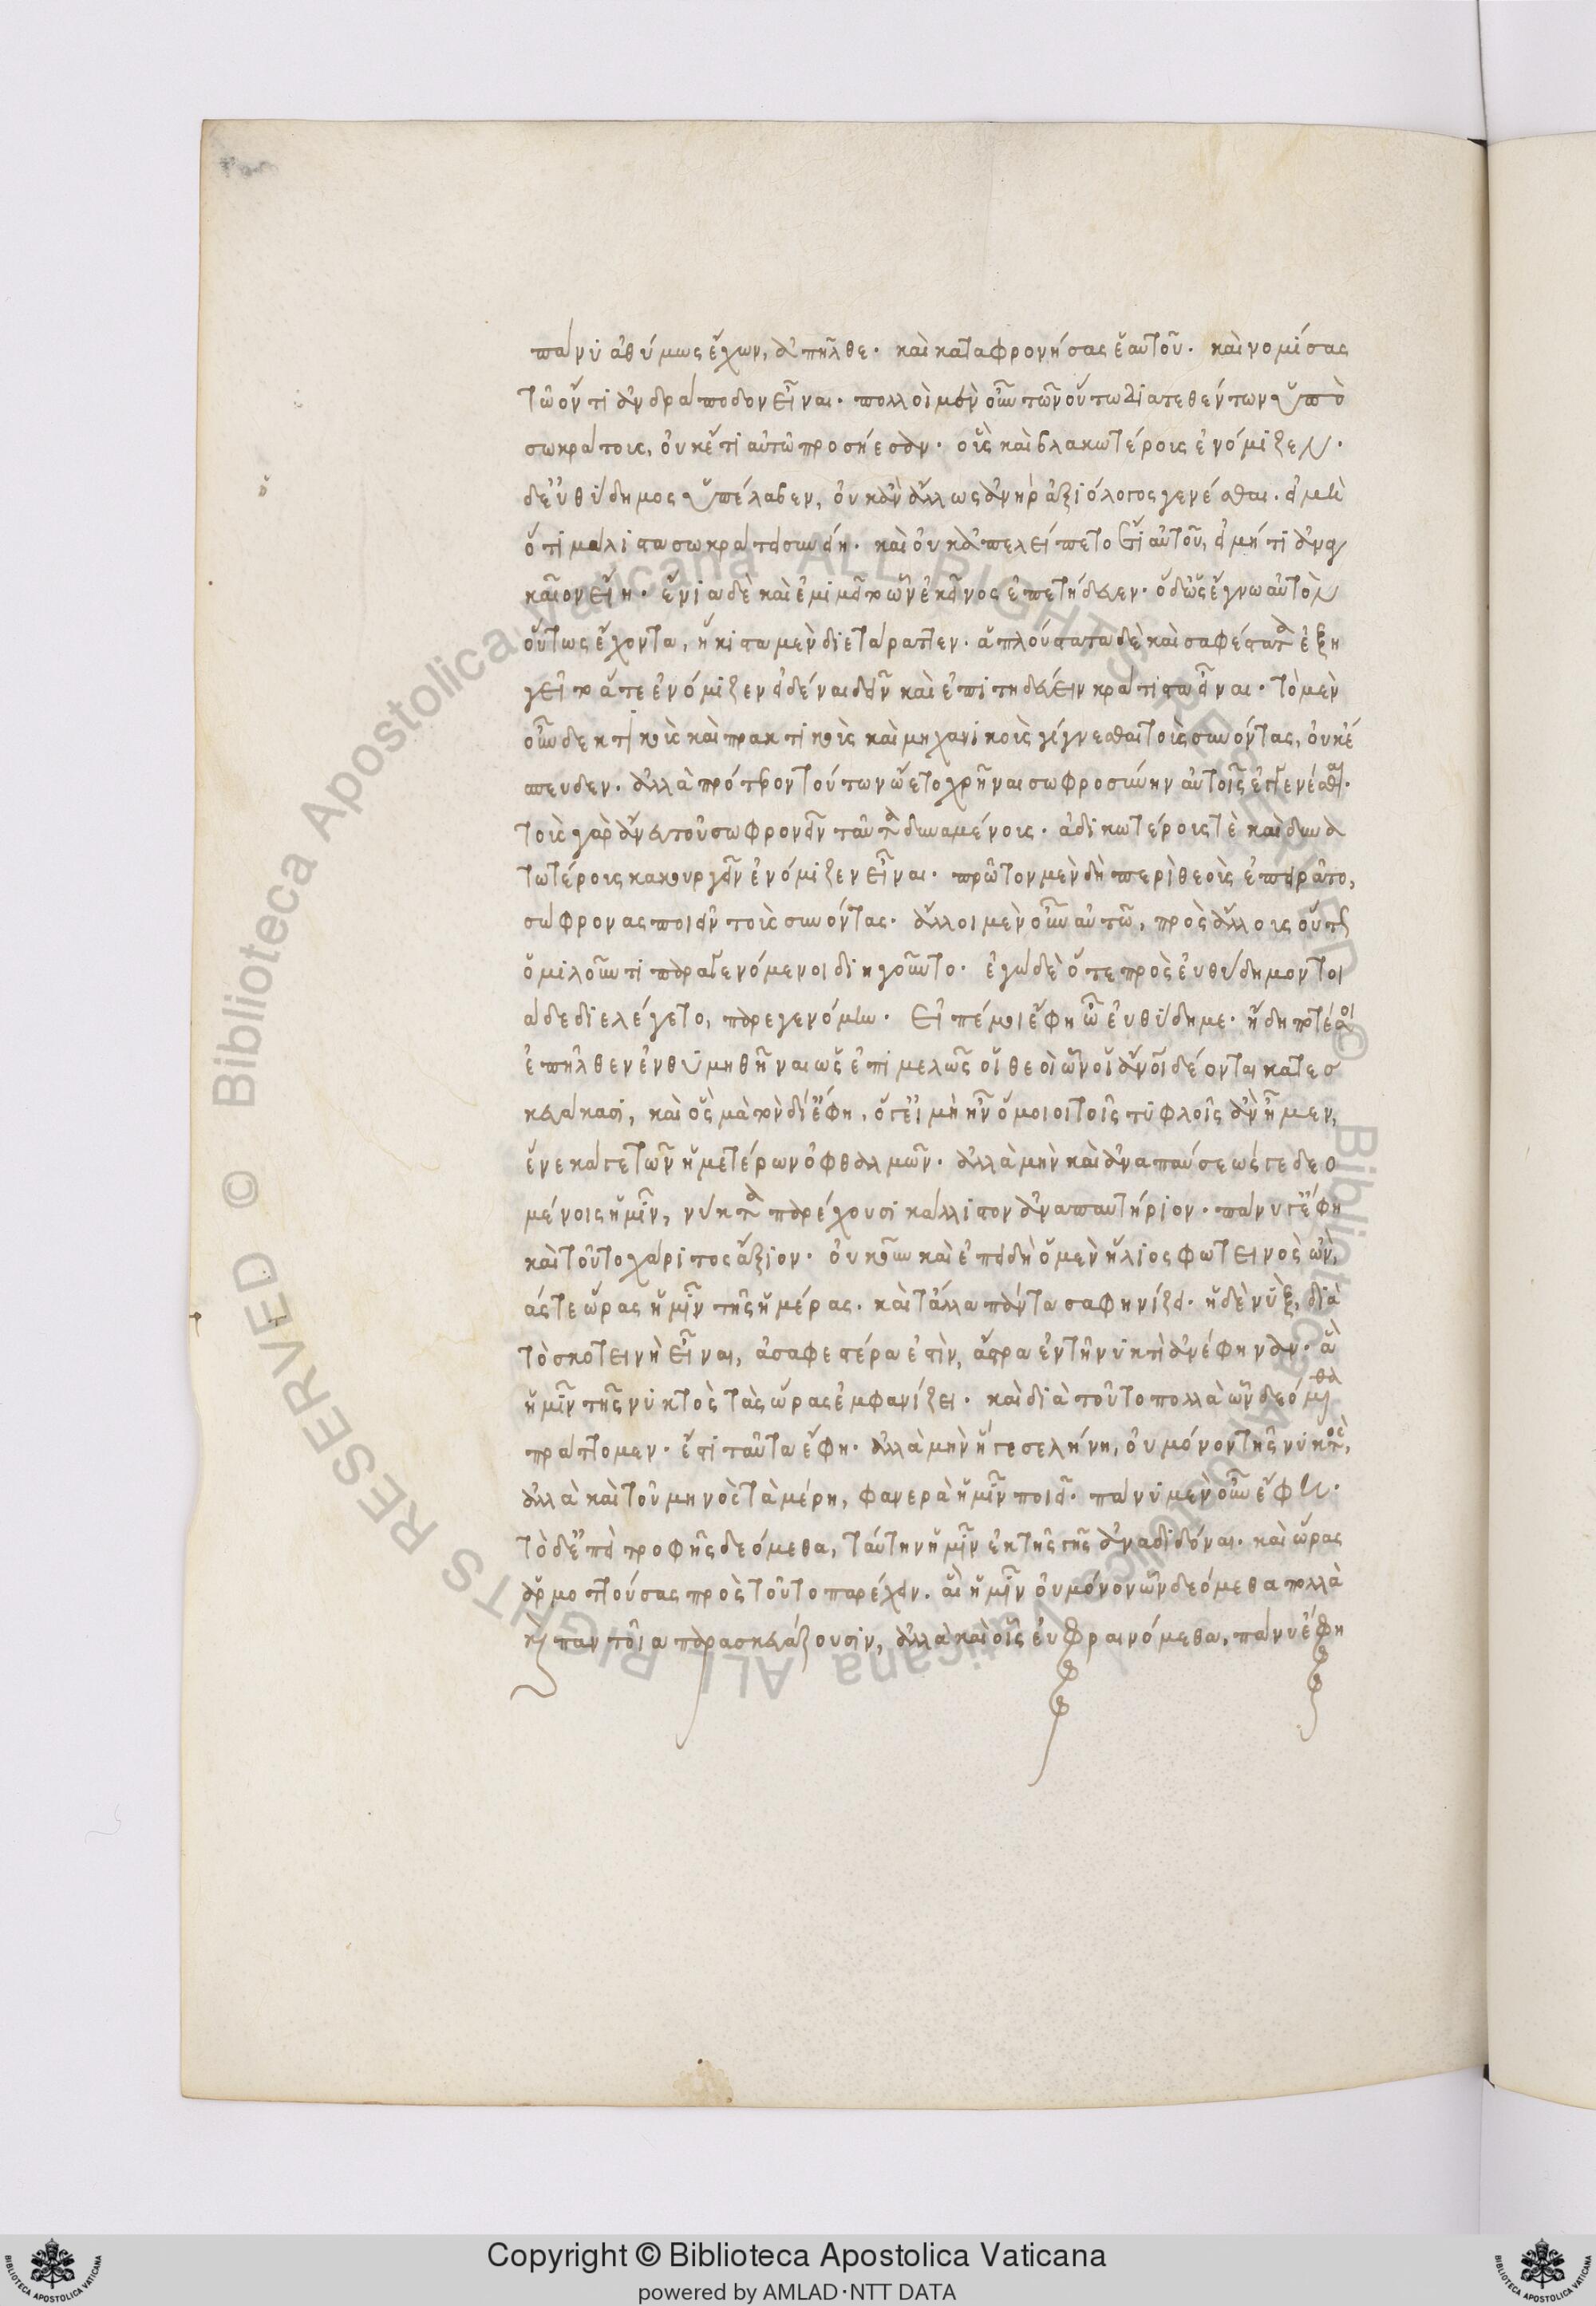 πάνυ ἀθύμως ἔχων, ἀπῆλθε· καὶ καταφρονήσας ἑαυτοῦ· καὶ νομίσας
τῶ ὄντι ἀνδράποδον εἶναι· πολλοὶ μὲν οὖν τῶν οὕτω διατεθέντων ὑπὸ
σωκράτους, οὐκέτι αὐτῶ προσήεσαν· οὓς καὶ βλακωτέρους ἐνόμιζεν·
δ' εὐθύδημος ὑπέλαβεν, οὐκ ἂν ἄλλως ἀνὴρ ἀξιόλογος γενέσθαι· εἰ μὴ
ὅτι μάλιστα σωκράτει συνείη· καὶ οὐκ ἀπελείπετο ἔτι αὐτοῦ, εἰ μή τι ἀναγ
καῖον εἴη· ἔνια δὲ καὶ ἐμιμεῖτο ὧν ἐκεῖνος ἐπετήδευεν· ὁ δ' ὡς ἔγνω αὐτὸν
οὕτως ἔχοντα, ἥκιστα μὲν διετάραττεν· ἁπλούστατα δὲ καὶ σαφέστατα ἐξη
γεῖτο ἅ τε ἐνόμιζεν εἰδέναι δεῖν καὶ ἐπιτηδεύειν κράτιστα εἶναι· τὸ μὲν
οὖν δεκτικοὺς καὶ πρακτικοὺς καὶ μηχανικοὺς γίγνεσθαι τοὺς συνόντας, οὐκ έ
σπευδεν· ἀλλὰ πρότερον τούτων ὤετο χρῆναι σωφροσύνην αὐτοῖς ἐγγενέσθαι·
τοὺς γὰρ ἄνευ τοῦ σωφρονεῖν ταῦτα δυναμένους· ἀδικωτέρους τὲ καὶ δυνα
τωτέρους κακουργεῖν ἐνόμιζεν εἶναι· πρῶτον μὲν δὴ περὶ θεοὺς ἐπειρᾶτο,
σώφρονας ποιεῖν τοὺς συνόντας· ἄλλοι μὲν οὖν αὐτῶ, πρὸς ἄλλους οὕτως
ὁμιλοῦντι παραγενόμενοι διηγοῦντο· ἐγὼ δὲ ὅτε πρὸς εὐθύδημον τοι
άδε διελέγετο, παρεγενόμην· Εἰπέ μοι ἔφη ὦ εὐθύδημε· ἤδη ποτέ σοι
ἐπῆλθεν ἐνθυμηθῆναι ὡς ἐπιμελῶς οἱ θεοὶ ὧν οἱ ἄνοι δέονται κατεσ
κευάκασι, καὶ ὃς μὰ τὸν δί' ἔφη, ὅτ' εἰ μὴ ἦν ὅμοιοι τοῖς τυφλοῖς ἂν ἦμεν,
ἕνεκά γε τῶν ἡμετέρων ὀφθαλμῶν· ἀλλὰ μὴν καὶ ἀναπαύσεώς γε δεο
μένοις ἡμῖν, νύκτα παρέχουσι κάλλιστον ἀναπαυτήριον· πάνυ γ' ἔφη
καὶ τοῦτο χάριτος ἄξιον· οὐκοῦν καὶ ἐπειδὴ ὁ μὲν ἥλιος φωτεινὸς ὢν,
άς τε ὥρας ἡμῖν τῆς ἡμέρας· καὶ τἄλλα πάντα σαφηνίζει· ἡ δὲ νὺξ, διὰ
τὸ σκοτεινὴ εἶναι, ἀσαφεστέρα ἐστὶν, ἄστρα ἐν τῇ νυκτὶ ἀνέφηναν· ἃ
ἡμῖν τῆς νυκτὸς τὰς ὥρας ἐμφανίζει· καὶ διὰ τοῦτο πολλὰ ὧν δεόμεθα
πράττομεν· ἔστι ταῦτα ἔφη· ἀλλὰ μὴν ἥ γε σελήνη, οὐ μόνον τῆς νυκτὸς,
ἀλλὰ καὶ τοῦ μηνὸς τὰ μέρη, φανερὰ ἡμῖν ποιεῖ· πάνυ μὲν οὖν ἔφη·
τὸ δ' ἐπεὶ τροφῆς δεόμεθα, ταύτην ἡμῖν ἐκ τῆς γῆς ἀναδιδόναι· καὶ ὥρας
ἁρμοττούσας πρὸς τοῦτο παρέχειν· αἳ ἡμῖν οὐ μόνον ὧν δεόμεθα πολλὰ
καὶ παντοῖα παρασκευάζουσιν, ἀλλὰ καὶ οἷς εὐφραινόμεθα, πάνυ ἔφη
Copyright © Biblioteca Apostolica Vaticana
powered by AMLAD·NTT DATA